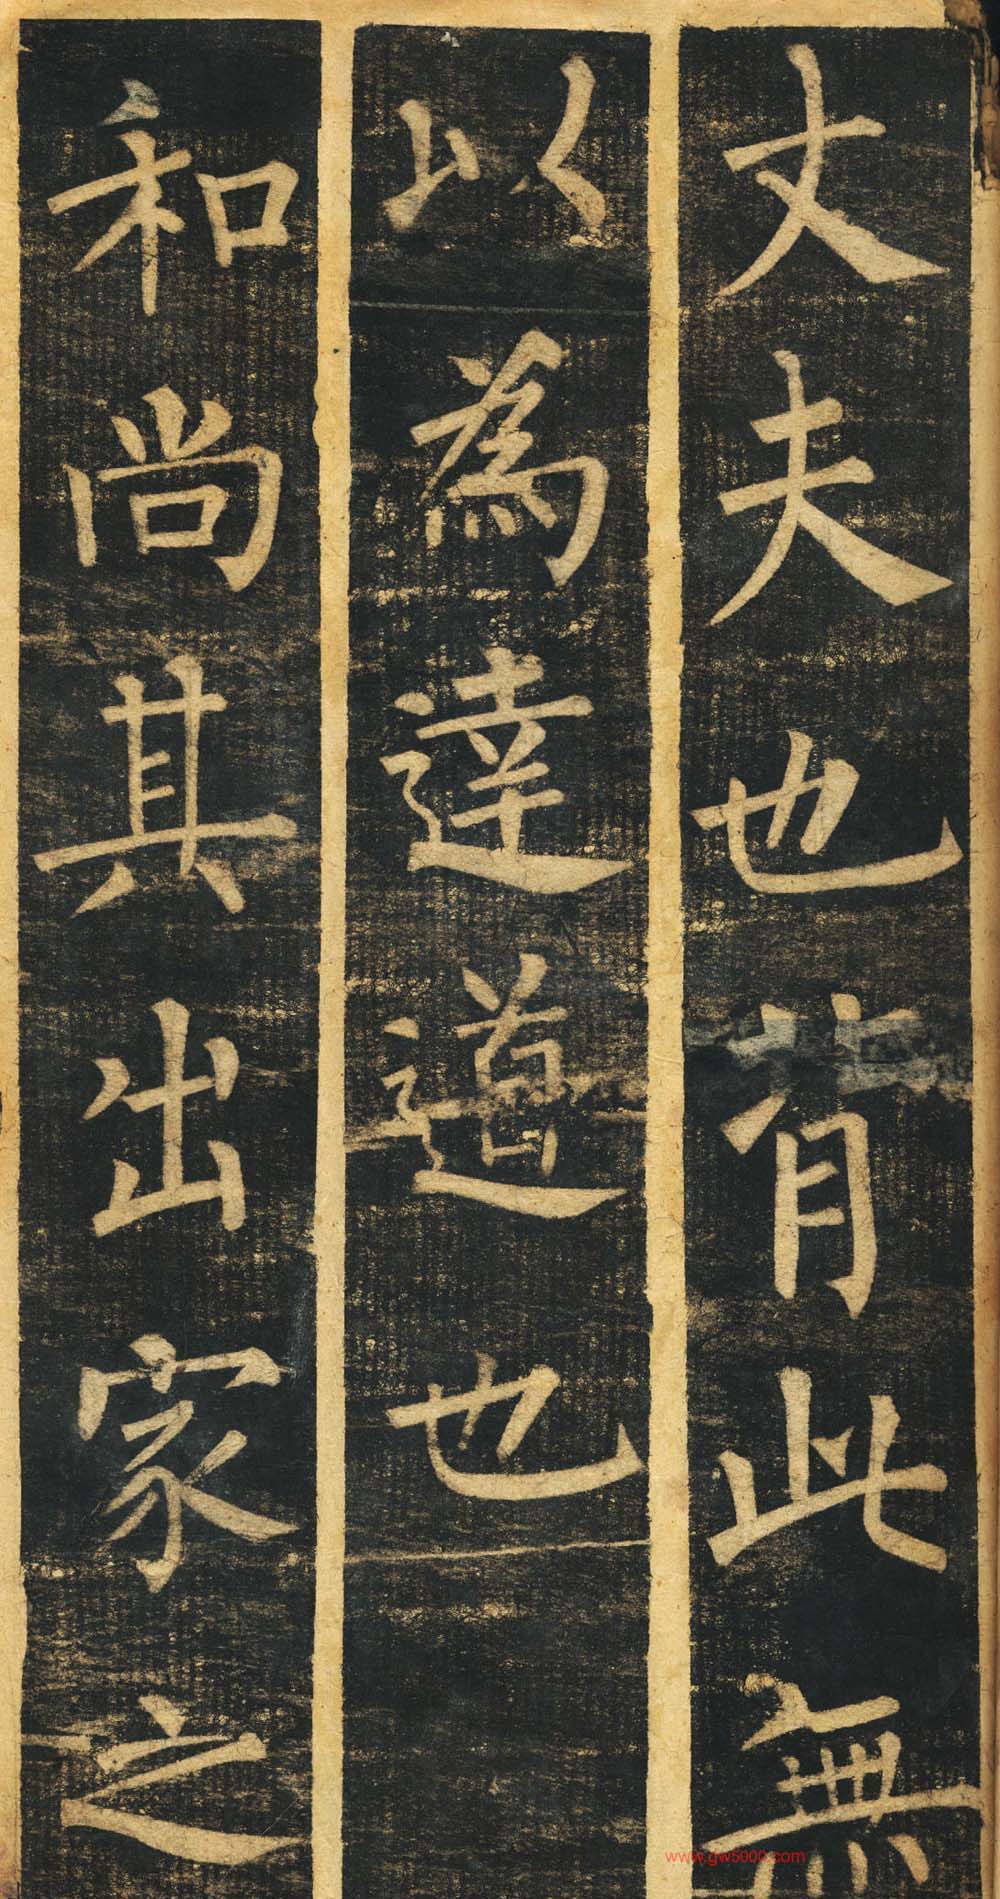 丈夫也背此無
以為達道也
和尚其出家之
www.gw5000.com